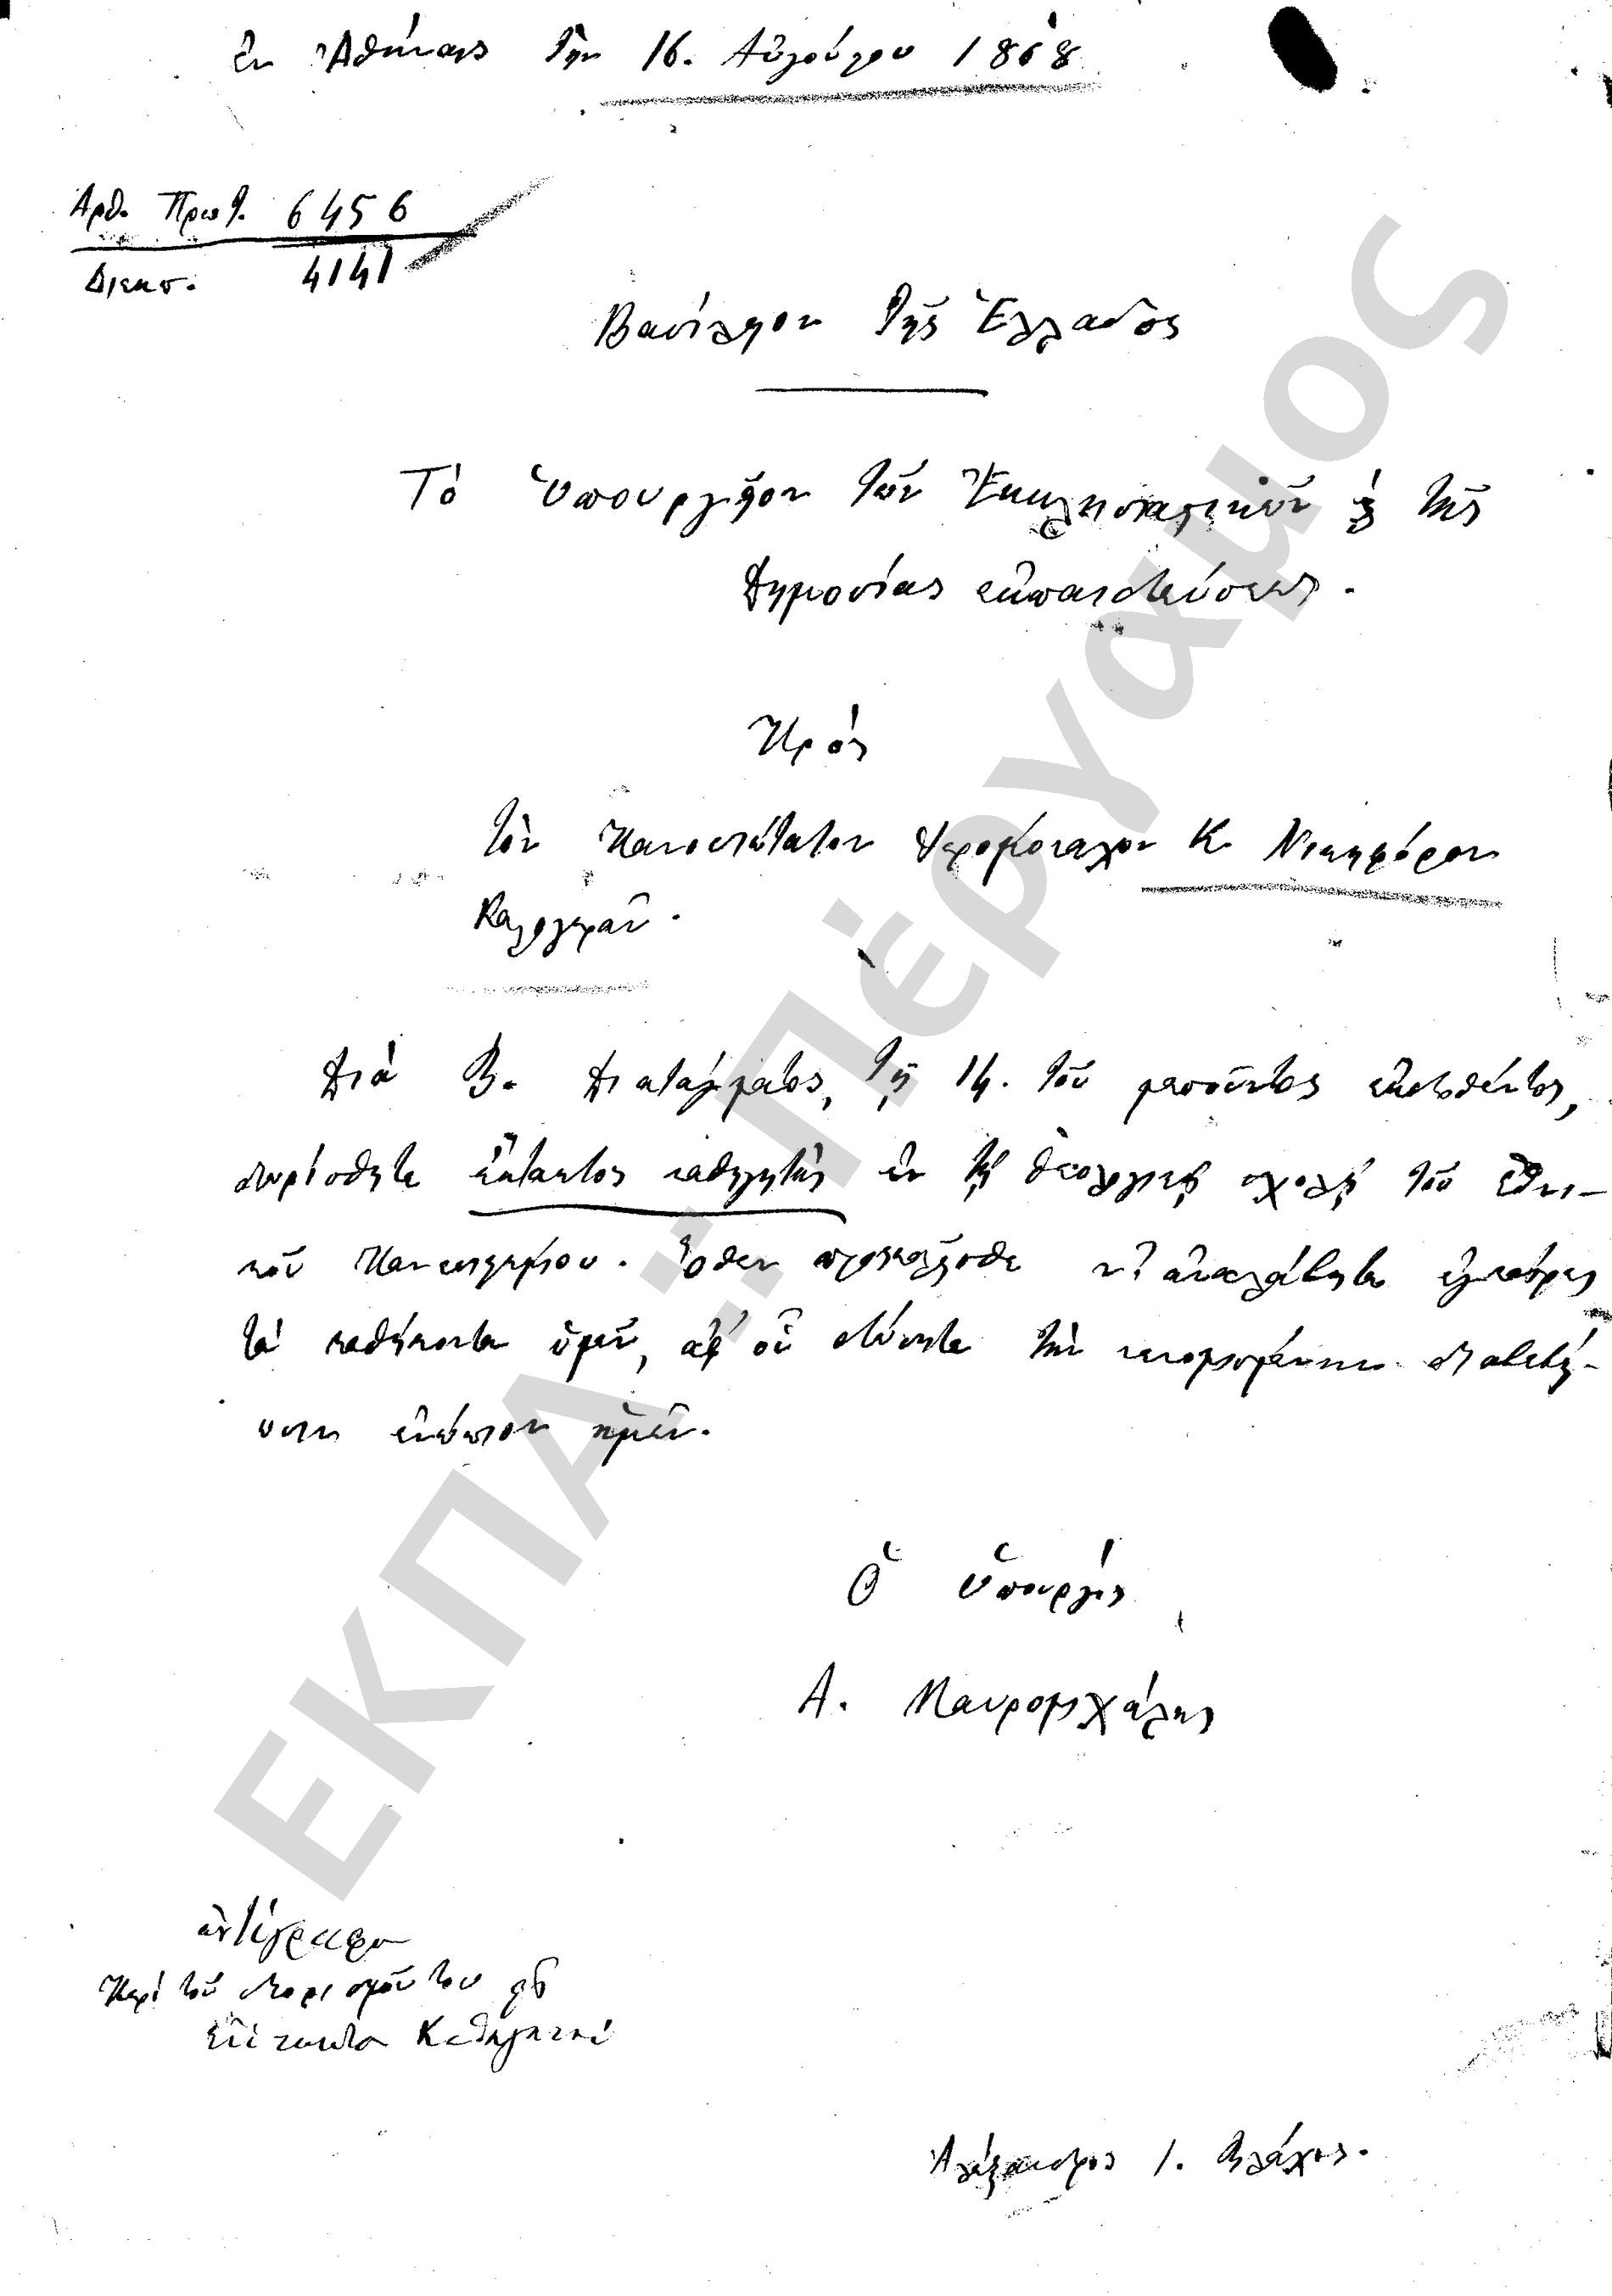 Ἐν Ἀθήναις τῇν 16. Αὐγούστου 1868
Ἀρθ. Πρωτ. 6456
Διεκπ. 4141
Βασίλειον τῆς Ἑλλάδος
Τὸ Ὑπουργεῖον τῶν Ἐκκλησιαστικῶν ϗ τῆς
Δημοσίας ἐκπαιδεύσεως.
Πρός
τὸν Πανοσιώτατον Ἱερομόναχον Κ. Νικηφόρον
Καλογερᾶν.
Διὰ Β. Διατάγματος, τῇ 14. τοῦ μεσοῦντος ἐκδοθέντος,
διωρίσθητε ἔκτακτος καθηγητὴς ἐν τῇ θεολογικῇ σχολῇ τοῦ ἐθνι-
κοῦ Πανεπιστημίου. Ὅθεν προσκαλεῖσθε ν' ἀναλάβητε ἐγκαίρως
τὰ καθήκοντα ὑμῶν, ἀφ' οὗ δώσητε τὴν νενομισμένην διαβεβαί-
ωσιν ἐνώπιον ἡμῶν.
Ὁ Ὑπουργός
Α. Μαυρομιχάλης
ἀντίγραφον
Περὶ τοῦ διορισμοῦ του ὡς
ἐκτάκτου Καθηγητοῦ
Ἀλέξανδρος Ι. Βλάχος.
ΕΚΠΑ.. Πέργαμος